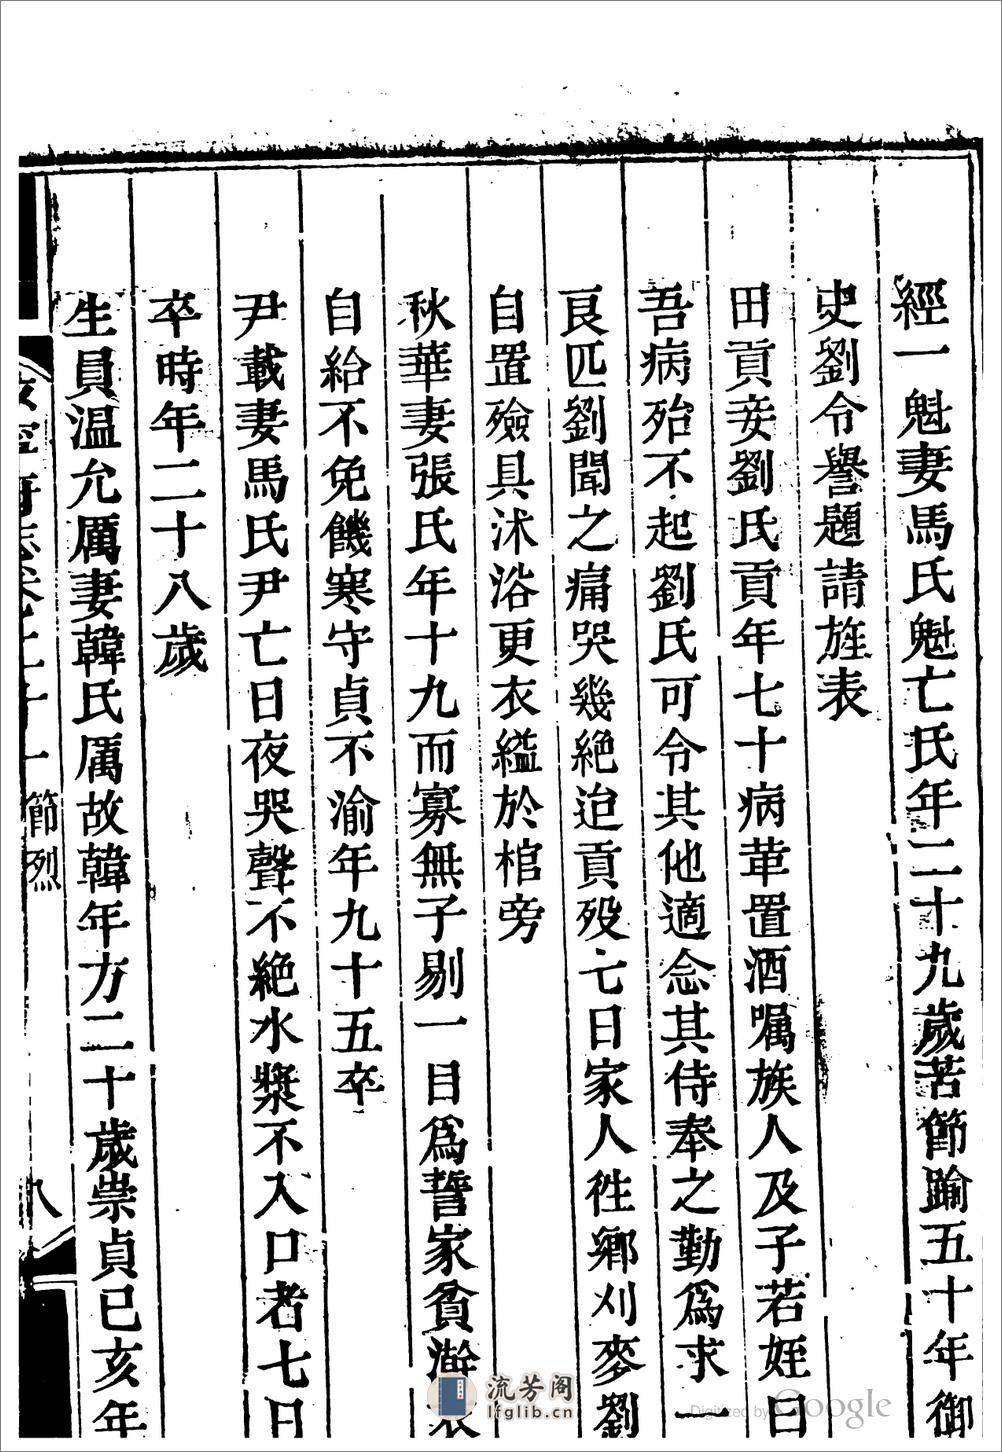 經一魁妻馬氏魁亡氏年二十九歲苦節踰五十年御
史劉令譽題請旌表
田貢妾劉氏貢年七十病革置酒嘱族人及子若姪曰
吾病殆不起劉氏可令其他適念其侍奉之勤爲求一
良匹劉聞之痛哭幾絶迨貢殁七日家人徃鄉刈麥劉
自置殮具沐浴更衣縊於棺旁
秋華妻張氏年十九而寡無子剔一目爲誓家貧澣衣
自給不免饑寒守貞不渝年九十五卒
尹載妻馬氏尹亡日夜哭聲不絶水漿不入口者七日
卒時年二十八歲
生員温允厲妻韓氏厲故韓年方二十歲崇貞己亥年
節烈
八
流芳阁
lfglib.cn
Digitized by Google